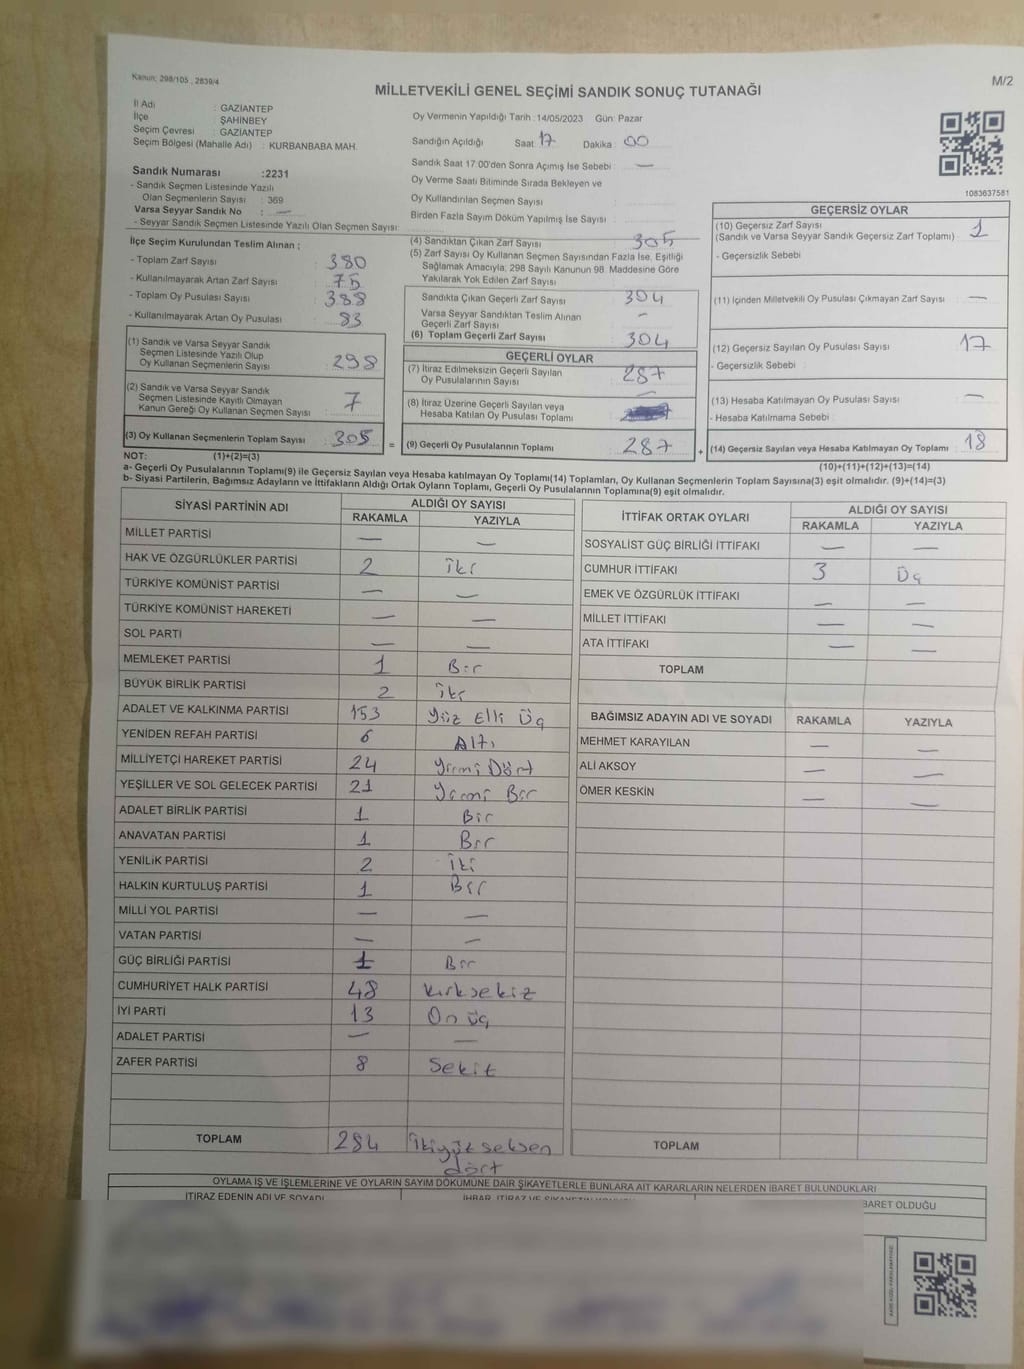 Kanun: 298/105 , 2839/4
M/2
MİLLETVEKİLİ GENEL SEÇİMİ SANDIK SONUÇ TUTANAĞI
İl Adı : GAZİANTEP
İlçe : ŞAHİNBEY
Seçim Çevresi : GAZİANTEP
Seçim Bölgesi (Mahalle Adı) : KURBANBABA MAH.
Oy Vermenin Yapıldığı Tarih :14/05/2023 Gün: Pazar
Sandığın Açıldığı Saat 17 Dakika : 00
Sandık Saat 17:00'den Sonra Açılmış İse Sebebi : —
Oy Verme Saati Bitiminde Sırada Bekleyen ve
Oy Kullandırılan Seçmen Sayısı :
Birden Fazla Sayım Döküm Yapılmış İse Sayısı :
1083637581
Sandık Numarası :2231
- Sandık Seçmen Listesinde Yazılı
Olan Seçmenlerin Sayısı : 369
Varsa Seyyar Sandık No : —
- Seyyar Sandık Seçmen Listesinde Yazılı Olan Seçmen Sayısı:
İlçe Seçim Kurulundan Teslim Alınan ;
- Toplam Zarf Sayısı : 380
- Kullanılmayarak Artan Zarf Sayısı : 75
- Toplam Oy Pusulası Sayısı : 388
- Kullanılmayarak Artan Oy Pusulası : 83
(1) Sandık ve Varsa Seyyar Sandık
Seçmen Listesinde Yazılı Olup
Oy Kullanan Seçmenlerin Sayısı : 298
(2) Sandık ve Varsa Seyyar Sandık
Seçmen Listesinde Kayıtlı Olmayan
Kanun Gereği Oy Kullanan Seçmen Sayısı : 7
(3) Oy Kullanan Seçmenlerin Toplam Sayısı : 305 =
(4) Sandıktan Çıkan Zarf Sayısı : 305
(5) Zarf Sayısı Oy Kullanan Seçmen Sayısından Fazla İse, Eşitliği
Sağlamak Amacıyla, 298 Sayılı Kanunun 98. Maddesine Göre
Yakılarak Yok Edilen Zarf Sayısı :
Sandıkta Çıkan Geçerli Zarf Sayısı : 304
Varsa Seyyar Sandıktan Teslim Alınan
Geçerli Zarf Sayısı : —
(6) Toplam Geçerli Zarf Sayısı : 304
GEÇERLİ OYLAR
(7) İtiraz Edilmeksizin Geçerli Sayılan
Oy Pusulalarının Sayısı : 287
(8) İtiraz Üzerine Geçerli Sayılan veya
Hesaba Katılan Oy Pusulası Toplamı : —
(9) Geçerli Oy Pusulalarının Toplamı : 287 +
GEÇERSİZ OYLAR
(10) Geçersiz Zarf Sayısı : 1
(Sandık ve Varsa Seyyar Sandık Geçersiz Zarf Toplamı)
- Geçersizlik Sebebi
(11) İçinden Milletvekili Oy Pusulası Çıkmayan Zarf Sayısı : —
(12) Geçersiz Sayılan Oy Pusulası Sayısı : 17
- Geçersizlik Sebebi
(13) Hesaba Katılmayan Oy Pusulası Sayısı : —
- Hesaba Katılmama Sebebi
(14) Geçersiz Sayılan veya Hesaba Katılmayan Oy Toplamı : 18
NOT: (1)+(2)=(3)
(10)+(11)+(12)+(13)=(14)
a- Geçerli Oy Pusulalarının Toplamı(9) ile Geçersiz Sayılan veya Hesaba katılmayan Oy Toplamı(14) Toplamları, Oy Kullanan Seçmenlerin Toplam Sayısına(3) eşit olmalıdır. (9)+(14)=(3)
b- Siyasi Partilerin, Bağımsız Adayların ve İttifakların Aldığı Ortak Oyların Toplamı, Geçerli Oy Pusulalarının Toplamına(9) eşit olmalıdır.
SİYASİ PARTİNİN ADI ALDIĞI OY SAYISI
RAKAMLA YAZIYLA
MİLLET PARTİSİ — —
HAK VE ÖZGÜRLÜKLER PARTİSİ 2 İki
TÜRKİYE KOMÜNİST PARTİSİ — —
TÜRKİYE KOMÜNİST HAREKETİ — —
SOL PARTİ — —
MEMLEKET PARTİSİ 1 Bir
BÜYÜK BİRLİK PARTİSİ 2 İki
ADALET VE KALKINMA PARTİSİ 153 Yüz Elli Üç
YENİDEN REFAH PARTİSİ 6 Altı
MİLLİYETÇİ HAREKET PARTİSİ 24 Yirmi Dört
YEŞİLLER VE SOL GELECEK PARTİSİ 21 Yirmi Bir
ADALET BİRLİK PARTİSİ 1 Bir
ANAVATAN PARTİSİ 1 Bir
YENİLİK PARTİSİ 2 İki
HALKIN KURTULUŞ PARTİSİ 1 Bir
MİLLİ YOL PARTİSİ — —
VATAN PARTİSİ — —
GÜÇ BİRLİĞİ PARTİSİ 1 Bir
CUMHURİYET HALK PARTİSİ 48 Kırksekiz
İYİ PARTİ 13 On üç
ADALET PARTİSİ — —
ZAFER PARTİSİ 8 Sekiz
TOPLAM 284 İkiyüz seksen
dört
İTTİFAK ORTAK OYLARI ALDIĞI OY SAYISI
RAKAMLA YAZIYLA
SOSYALİST GÜÇ BİRLİĞİ İTTİFAKI — —
CUMHUR İTTİFAKI 3 Üç
EMEK VE ÖZGÜRLÜK İTTİFAKI — —
MİLLET İTTİFAKI — —
ATA İTTİFAKI — —
TOPLAM
BAĞIMSIZ ADAYIN ADI VE SOYADI RAKAMLA YAZIYLA
MEHMET KARAYILAN — —
ALİ AKSOY — —
ÖMER KESKİN — —
TOPLAM
OYLAMA İŞ VE İŞLEMLERİNE VE OYLARIN SAYIM DÖKÜMÜNE DAİR ŞİKAYETLERLE BUNLARA AİT KARARLARIN NELERDEN İBARET BULUNDUKLARI
İTİRAZ EDENİN ADI VE SOYADI
İBARET OLDUĞU